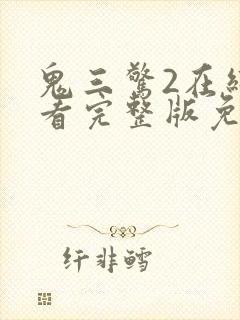 鬼三驚2在
看完整版免
纤非鳕